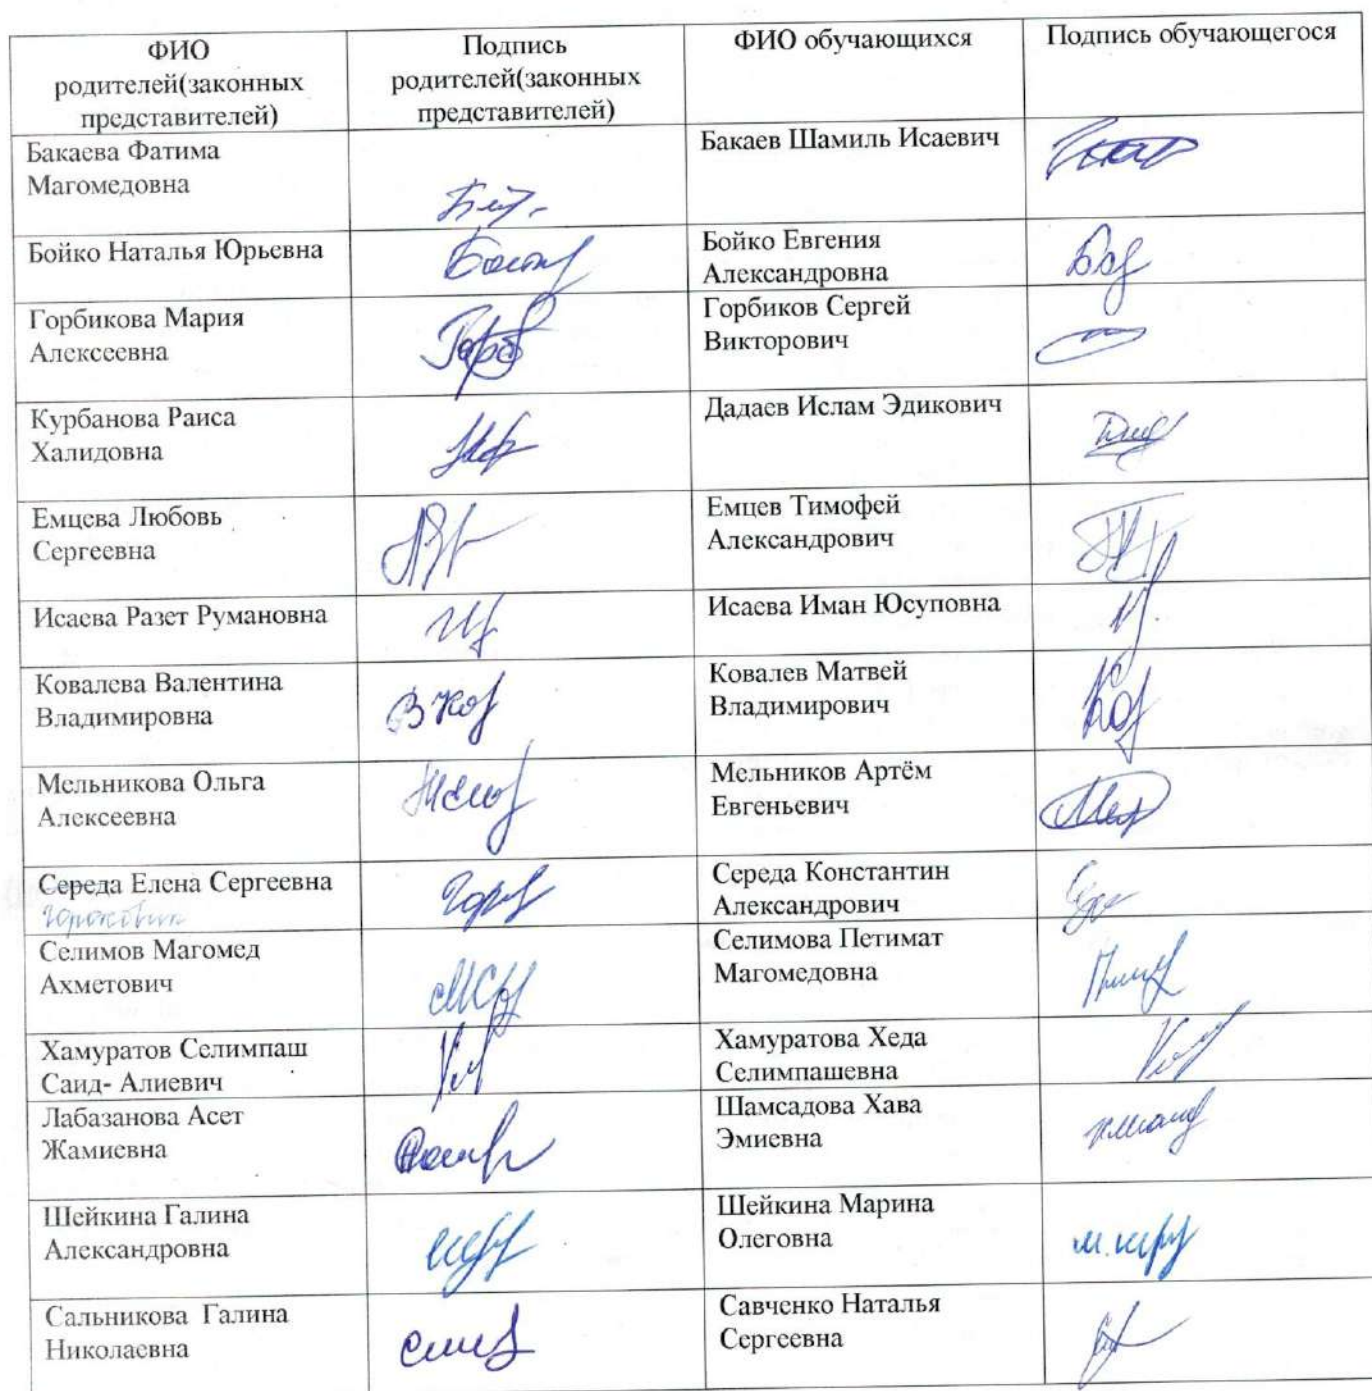 ФИО
родителей(законных
представителей)
Подпись
родителей(законных
представителей)
ФИО обучающихся
Подпись обучающегося
Бакаева Фатима
Магомедовна
Бакаев Шамиль Исаевич
Бойко Наталья Юрьевна
Бойко Евгения
Александровна
Горбикова Мария
Алексеевна
Горбиков Сергей
Викторович
Курбанова Раиса
Халидовна
Дадаев Ислам Эдикович
Емцева Любовь
Сергеевна
Емцев Тимофей
Александрович
Исаева Разет Румановна
Исаева Иман Юсуповна
Ковалева Валентина
Владимировна
Ковалев Матвей
Владимирович
Мельникова Ольга
Алексеевна
Мельников Артём
Евгеньевич
Середа Елена Сергеевна
Середа Константин
Александрович
Селимов Магомед
Ахметович
Селимова Петимат
Магомедовна
Хамуратов Селимпаш
Саид- Алиевич
Хамуратова Хеда
Селимпашевна
Лабазанова Асет
Жамиевна
Шамсадова Хава
Эмиевна
Шейкина Галина
Александровна
Шейкина Марина
Олеговна
Сальникова Галина
Николаевна
Савченко Наталья
Сергеевна